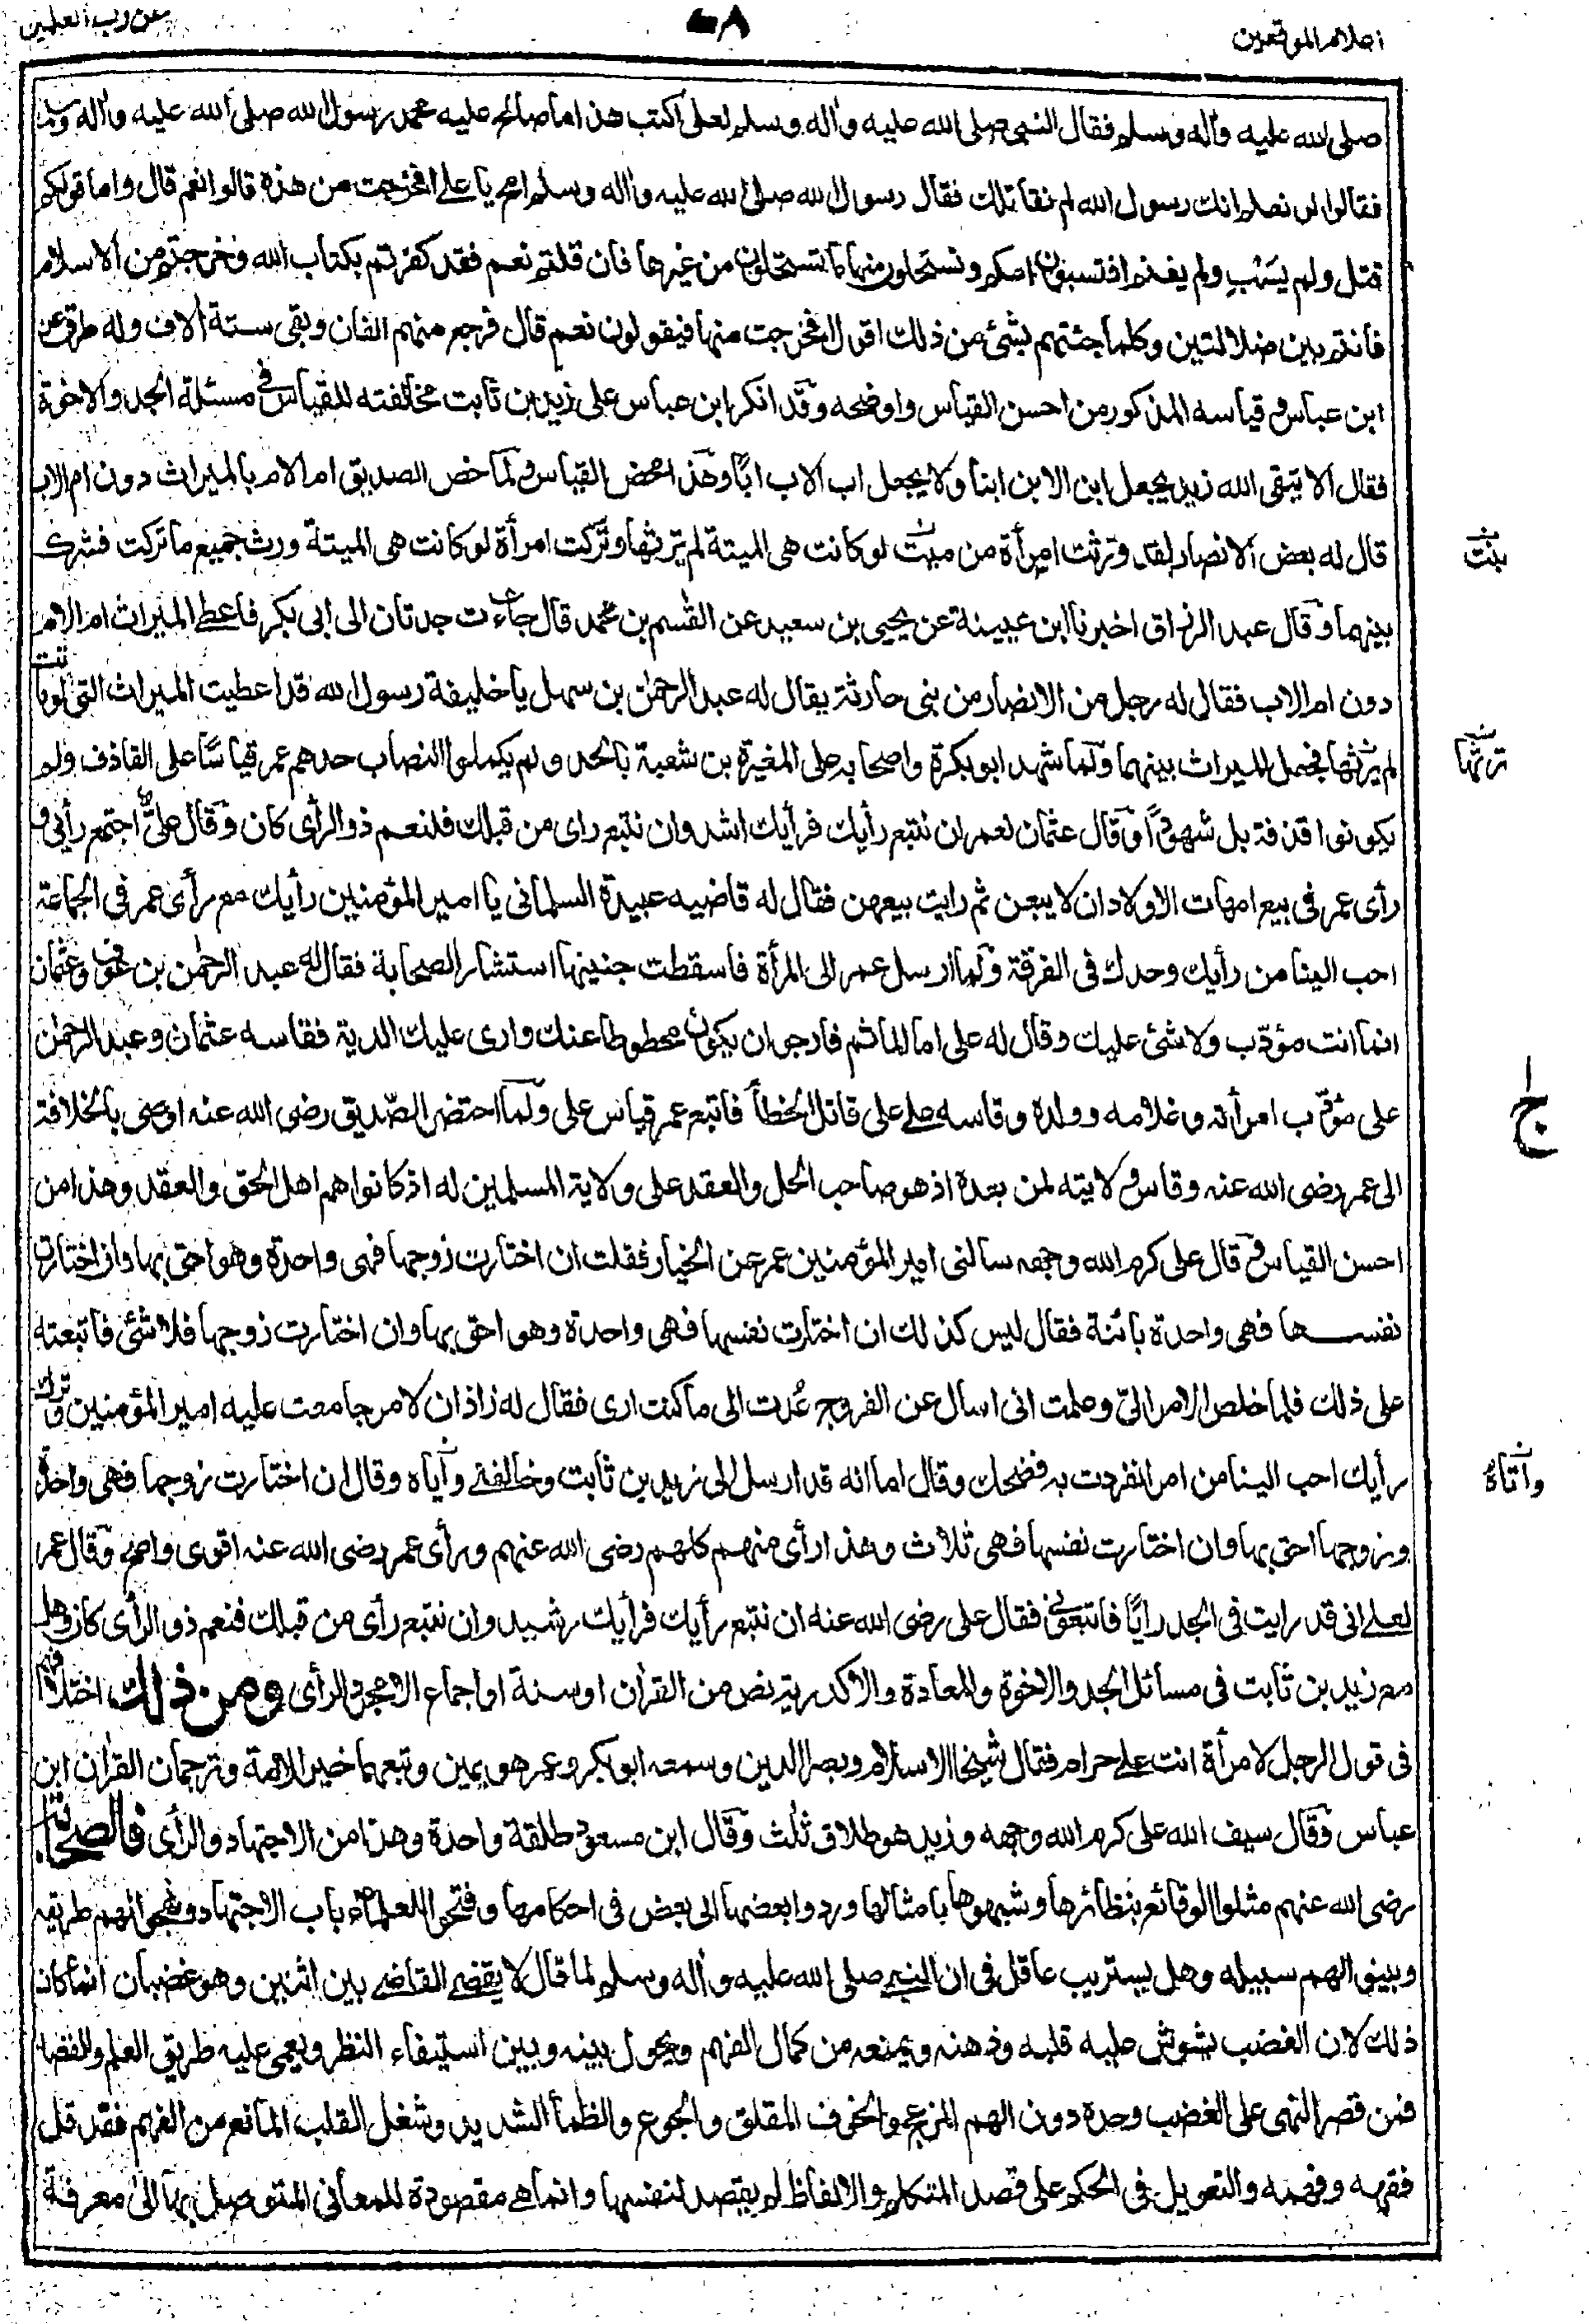 اعلام الموقعين
٧٨
عن رب العلمين
صلى الله عليه واله وسلم فقال النبي صلى الله عليه واله وسلم لعلى اكتب هذا ما صالح عليه محمد رسول الله صلى الله عليه واله وسلم
فقالوا لو نعلم انك رسول الله لم نقاتلك فقال رسول الله صلى الله عليه واله وسلم امح يا على افخرجت من هذه قالوا نعم قال واما قولكم
قتل ولم يسب ولم يغنم افتسبون امكم وتستحلون منها ما تستحلون من غيرها فان قلتم نعم فقد كفرتم بكتاب الله وخرجتم من الاسلام
فانتم بين ضلالتين وكلما جئتهم بشئ من ذلك اقول افخرجت منها فيقولون نعم قال فرجع منهم الفان وبقى ستة الاف وله طرق عن
ابن عباس و قياسه المذكور من احسن القياس واوضحه وقد انكر ابن عباس على زيد بن ثابت مخالفته للقياس فى مسئلة الجد والاخوة
فقال الا يتقى الله زيد يجعل ابن الابن ابنا ولا يجعل اب الاب ابًا وهذا محض القياس و لما خص الصديق ام الام بالميراث دون ام الاب
قال له بعض الانصار لقد ورثت امرأة من ميت لو كانت هى الميتة لم يرثها وتركت امرأة لو كانت هى الميتة ورث جميع ما تركت فشرك
بينهما وقال عبد الرزاق اخبرنا ابن عيينة عن يحيى بن سعيد عن القسم بن محمد قال جاءت جدتان الى ابى بكر فاعطى الميراث ام الام
دون ام الاب فقال له رجل من الانصار من بنى حارثة يقال له عبد الرحمن بن سهل يا خليفة رسول الله قد اعطيت الميراث التى لو ماتت
لم يرثها فجعل الميراث بينهما ولما شهد ابو بكرة واصحابه على المغيرة بن شعبة بالحد ولم يكملوا النصاب حدهم عمر قياسًا على القاذف ولم
يكونوا قذفة بل شهودًا وقال عثمان لعمر ان نتبع رأيك فرأيك اشد وان نتبع راى من قبلك فلنعم ذو الرأى كان وقال على اجتمع رأيى و
رأى عمر فى بيع امهات الاولاد ان لا يبعن ثم رايت بيعهن فقال له قاضيه عبيدة السلمانى يا امير المؤمنين رأيك مع رأى عمر فى الجماعة
احب الينا من رأيك وحدك فى الفرقة ولما ارسل عمر الى المرأة فاسقطت جنينها استشار الصحابة فقال له عبد الرحمن بن عوف وعثمان
انما انت مؤدب ولا شئ عليك وقال له على اما الماثم فارجو ان يكون محطوطا عنك وارى عليك الدية فقاسه عثمان وعبد الرحمن
على مؤدب امرأته وغلامه وولده وقاسه على على قاتل الخطأ فاتبع عمر قياس على ولما احتضر الصديق رضى الله عنه اوصى بالخلافة
الى عمر رضى الله عنه وقاس ولايته لمن بعده اذ هو صاحب الحل والعقد على ولاية المسلمين له اذ كانوا هم اهل الحق والعقد وهذا من
احسن القياس و قال على كرم الله وجهه سالنى امير المؤمنين عمر عن الخيار فقلت ان اختارت زوجها فهى واحدة وهو احق بها وان اختارت
نفسها فهى واحدة بائنة فقال ليس كذلك ان اختارت نفسها فهى واحدة وهو احق بها وان اختارت زوجها فلا شئ فاتبعته
على ذلك فلما خلص الامر الىّ وعلمت انى اسال عن الفروج عُدت الى ما كنت ارى فقال له زاذان لامر جامعت عليه امير المؤمنين وتركت
رأيك احب الينا من امر انفردت به فضحك وقال اما انه قد ارسل الى زيد بن ثابت وخالفنى واياه وقال ان اختارت زوجها فهى واحدة
وزوجها احق بها وان اختارت نفسها فهى ثلاث وهذا رأى منهم كلهم رضى الله عنهم ورأى عمر رضى الله عنه اقوى واصح وقال عمر
لعلى انى قد رايت فى الجد رايًا فاتبعونى فقال على رضى الله عنه ان نتبع رأيك فرأيك رشيد وان نتبع رأى من قبلك فنعم ذو الرأى كان وهل
مع زيد بن ثابت فى مسائل الجد والاخوة والمعادة والاكدرية نص من القرآن او سنة او اجماع الا مجرد الرأى ومن ذلك اختلافهم
فى قول الرجل لامرأة انت على حرام فقال شيخا الاسلام وبصر الدين وسمعه ابو بكر وعمر هو يمين وتبعهما خير الامة وترجمان القرآن ابن
عباس وقال سيف الله على كرم الله وجهه وزيد هو طلاق ثلث وقال ابن مسعود طلقة واحدة وهذا من الاجتهاد والرأى فالصحابة
رضى الله عنهم مثلوا الوقائع بنظائرها وشبهوها بامثالها وردوا بعضها الى بعض فى احكامها وفتحوا للعلماء باب الاجتهاد ونهجوا لهم طريقه
وبينوا لهم سبيله وهل يستريب عاقل فى ان النبى صلى الله عليه واله وسلم لما قال لا يقضى القاضى بين اثنين وهو غضبان انما كان
ذلك لان الغضب يشوش عليه قلبه وذهنه ويمنعه من كمال الفهم ويحول بينه وبين استيفاء النظر ويعمى عليه طريق العلم والقصد
فمن قصر النهى على الغضب وحده دون الهم المزعج والخوف المقلق والجوع والظمأ الشديد وشغل القلب المانع من الفهم فقد قل
فقهه وفهمه والتعويل فى الحكم على قصد المتكلم والالفاظ لم يقصد لنفسها وانما هى مقصودة للمعانى المتوصل بها الى معرفة
بنت
ترثها
ج
واتاه